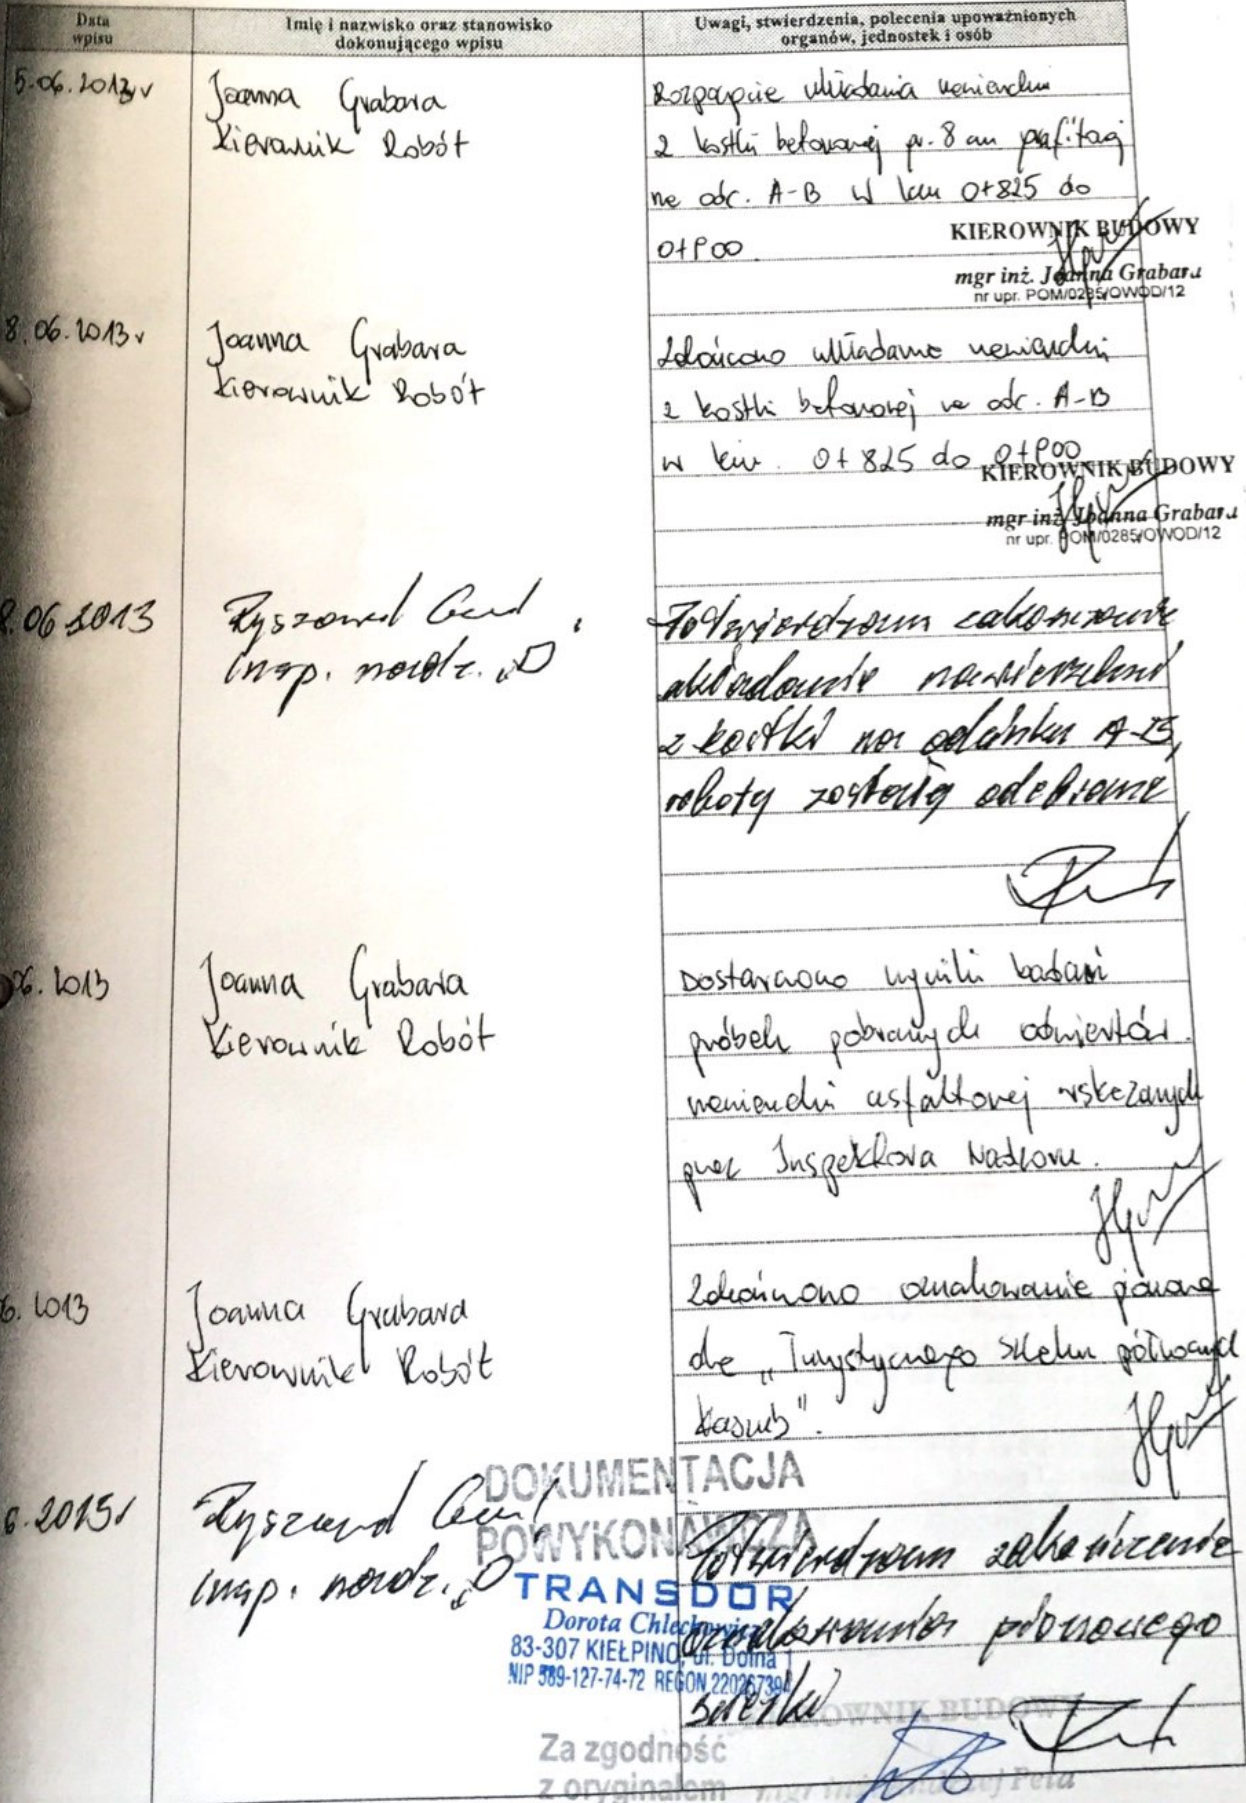 Data
wpisu
Imię i nazwisko oraz stanowisko
dokonującego wpisu
Uwagi, stwierdzenia, polecenia upoważnionych
organów, jednostek i osób
5.06.2013r
Joanna Grabara
Kierownik Robót
Rozpoczęcie układania nawierzchni
z kostki betonowej gr. 8 cm
na odc. A-B w km 0+825 do
0+900.
KIEROWNIK BUDOWY
mgr inż. Joanna Grabara
nr upr. POM/0285/OWOD/12
8.06.2013r
Joanna Grabara
Kierownik Robót
Zakończono układanie nawierzchni
z kostki betonowej na odc. A-B
w km. 0+825 do 0+900
KIEROWNIK BUDOWY
mgr inż. Joanna Grabara
nr upr. POM/0285/OWOD/12
8.06 2013
Ryszard
insp. nadz. „D
Potwierdzam zakończenie
układanie nawierzchni
z kostki na odcinku A-B,
roboty zostały odebrane
06.2013
Joanna Grabara
Kierownik Robót
Dostarczono wyniki badań
próbek pobranych odwiertów
nawierzchni asfaltowej wskazanych
przez Inspektora Nadzoru.
6.2013
Joanna Grabara
Kierownik Robót
Zakończono oznakowanie pionowe
dla „Turystycznego Szlaku północnych
Kaszub".
6.2013r
Ryszard
insp. nadz. „D
Potwierdzam zakończenie
oznakowania pionowego
DOKUMENTACJA
POWYKONAWCZA
TRANSDOR
Dorota Chlechowicz
83-307 KIEŁPINO, ul. Dolna 1
NIP 589-127-74-72 REGON
KIEROWNIK BUDOWY
Za zgodność
z oryginałem
mgr inż. Andrzej Peta